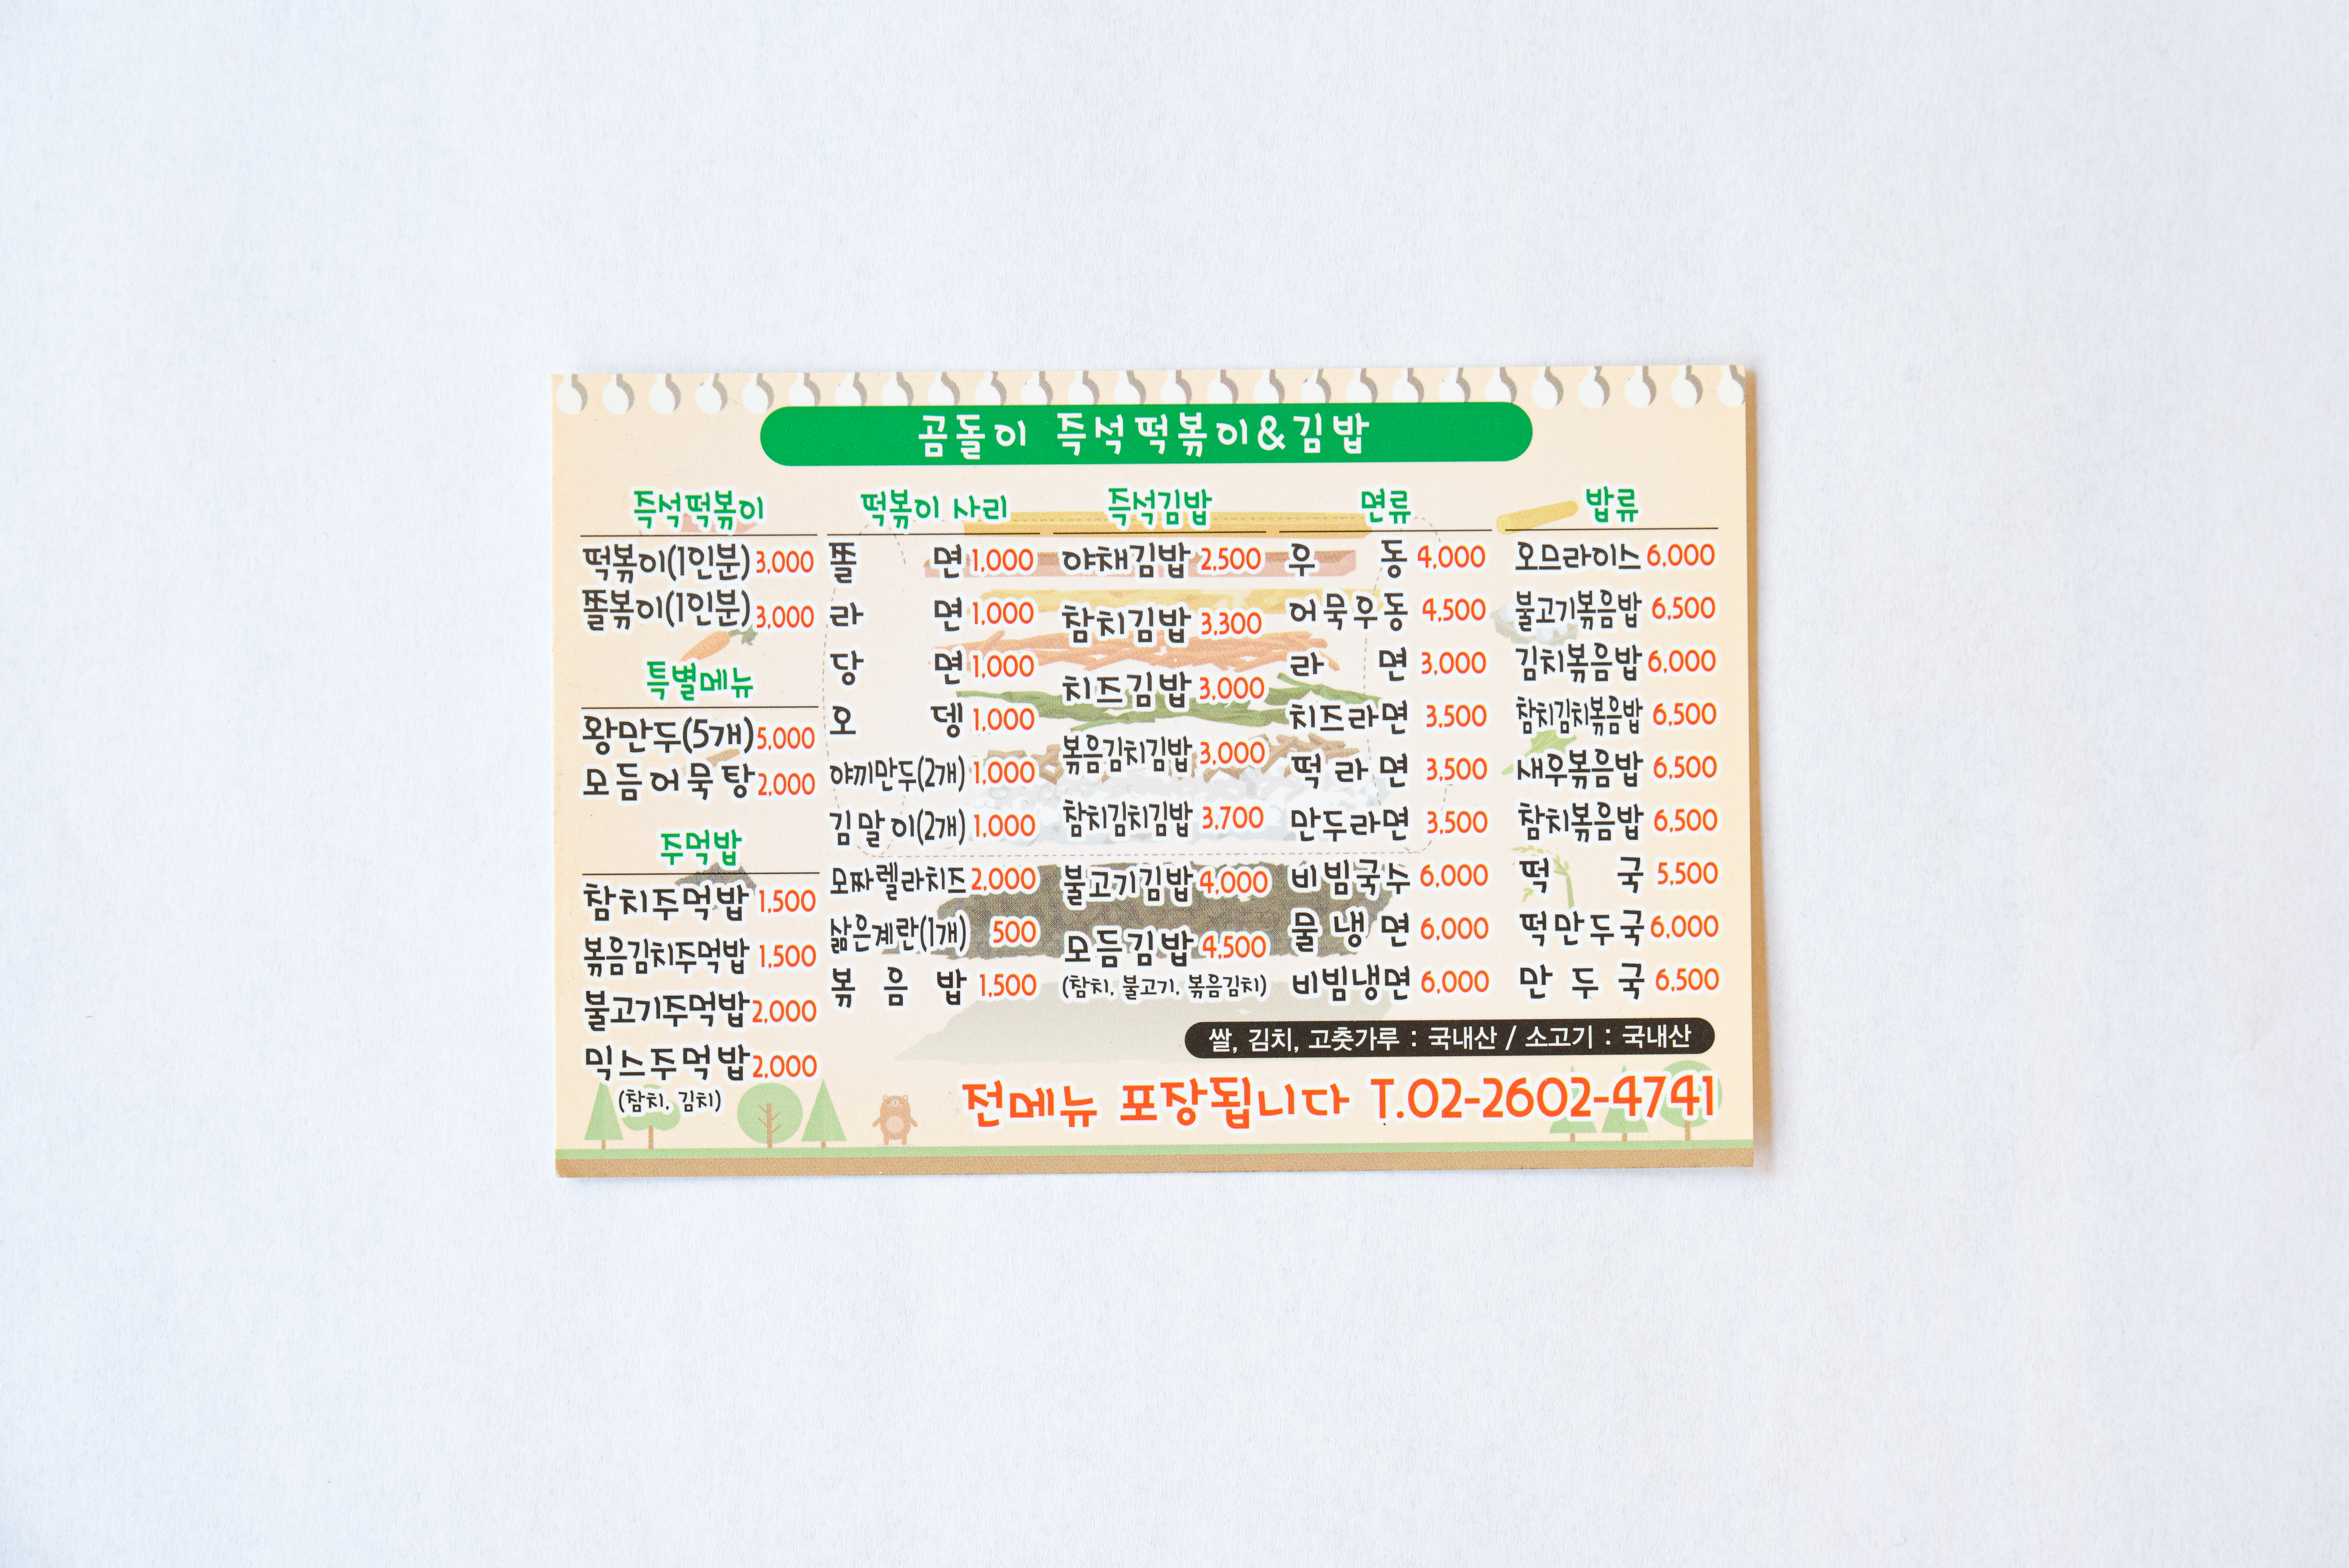 곰돌이 즉석떡볶이&김밥
즉석떡볶이
떡볶이(1인분) 3,000
쫄볶이(1인분) 3,000
특별메뉴
왕만두(5개) 5,000
모듬어묵탕 2,000
주먹밥
참치주먹밥 1,500
볶음김치주먹밥 1,500
불고기주먹밥 2,000
믹스주먹밥 2,000
(참치, 김치)
떡볶이 사리
쫄면 1,000
라면 1,000
당면 1,000
오뎅 1,000
야끼만두(2개) 1,000
김말이(2개) 1,000
모짜렐라치즈 2,000
삶은계란(1개) 500
볶음밥 1,500
즉석김밥
야채김밥 2,500
참치김밥 3,300
치즈김밥 3,000
볶음김치김밥 3,000
참치김치김밥 3,700
불고기김밥 4,000
모듬김밥 4,500
(참치, 불고기, 볶음김치)
면류
우동 4,000
어묵우동 4,500
라면 3,000
치즈라면 3,500
떡라면 3,500
만두라면 3,500
비빔국수 6,000
물냉면 6,000
비빔냉면 6,000
밥류
오므라이스 6,000
불고기볶음밥 6,500
김치볶음밥 6,000
참치김치볶음밥 6,500
새우볶음밥 6,500
참치볶음밥 6,500
떡국 5,500
떡만두국 6,000
만두국 6,500
쌀, 김치, 고춧가루 : 국내산 / 소고기 : 국내산
전메뉴 포장됩니다 T.02-2602-4741